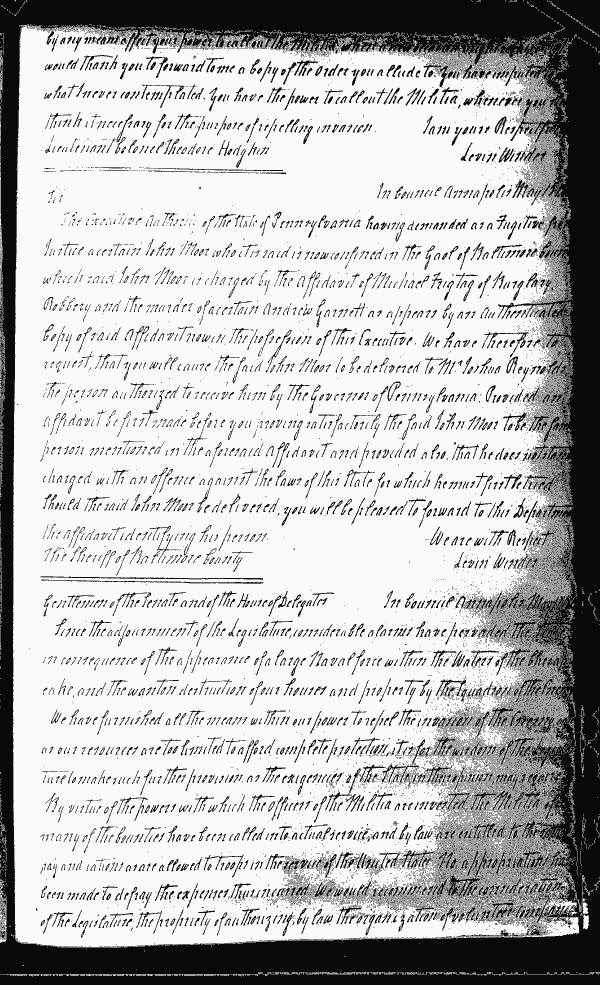 by any means affect your power to call out the Militia, when
would thank you to forward to me a Copy of the order you allude to. You have imputed to
what I never contemplated. You have the power to call out the Militia, whenever you
think it necessary for the purpose of repelling invasion. I am yours Respectfully
Lieutenant Colonel Theodore Hodgkin Levin Winder
In Council Annapolis May
Sir
The Executive Authority of the State of Pennsylvania having demanded as a Fugitive from
Justice a certain John Moor who it is said is now confined in the Gaol of Baltimore County
which said John Moor is charged by the Affidavit of Michael of Burglary
Robbery and the murder of a certain Andrew Garnett as appears by an Authenticated
Copy of said Affidavit now in the possession of this Executive. We have therefore to
request, that you will cause the said John Moor to be delivered to Mr Joshua Reynolds
the person authorized to receive him by the Governor of Pennsylvania: Provided an
affidavit be first made before you proving satisfactorily the said John Moor to be the same
person mentioned in the aforesaid Affidavit and provided also, that he does not stand
charged with an offence against the laws of this State for which he must first be tried
Should the said John Moor be delivered, you will be pleased to forward to this Department
the affidavit identifying his person. We are with Respect
The Sheriff of Baltimore County Levin Winder
Gentlemen of the Senate and of the House of Delegates In Council Annapolis May
Since the adjournment of the Legislature, considerable alarms have pervaded the State
in consequence of the appearance of a large Naval force within the Waters of the Chesap
eake, and the wanton destruction of our houses and property by the Squadron of the Enemy
We have furnished all the means within our power to repel the invasion of the Enemy
as our resources are too limited to afford complete protection, it is for the wisdom of the Legisla
ture to make such further provision as the exigencies of the State in their opinion may require
By virtue of the powers with which the officers of the Militia are invested, the Militia of
many of the Counties have been called into actual service, and by law are entitled to the
pay and rations as are allowed to troops in the service of the United States. No appropriation has
been made to defray the expenses thus incurred. We would recommend to the consideration
of the Legislature, the propriety of authorizing, by law the organization of volunteer companies